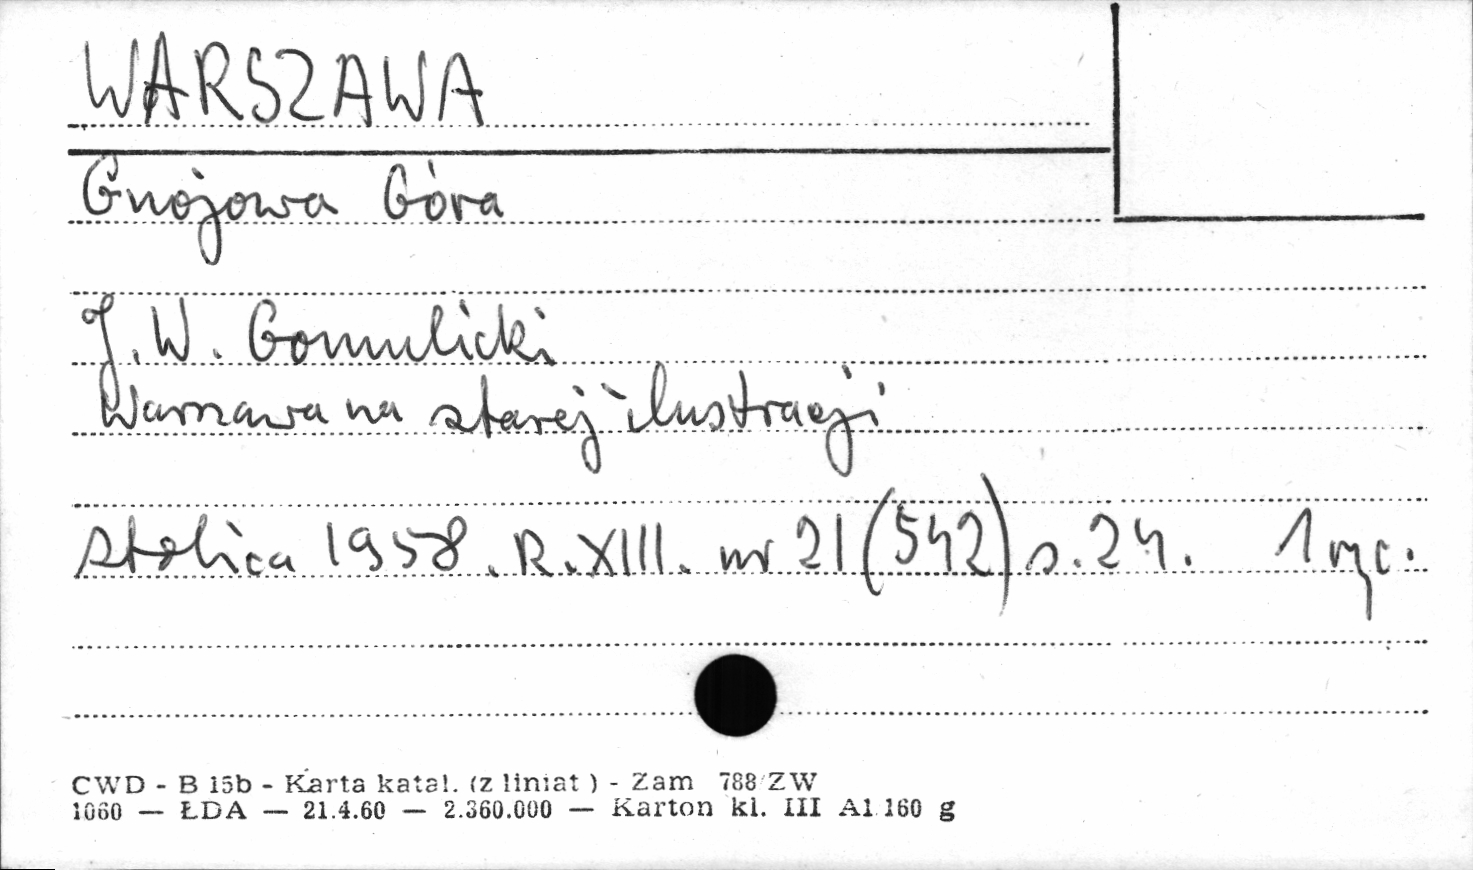 WARSZAWA
Gnojowa Góra
J. W. Gomulicki
Warszawa na starej ilustracji
Stolica 1958. R. XIII. nr 21 (542) s. 24. 1 ryc.
CWD - B 15b - Karta katal. (z liniat ) - Zam 788/ZW
1060 — ŁDA — 21.4.60 — 2.360.000 — Karton kl. III A1 160 g